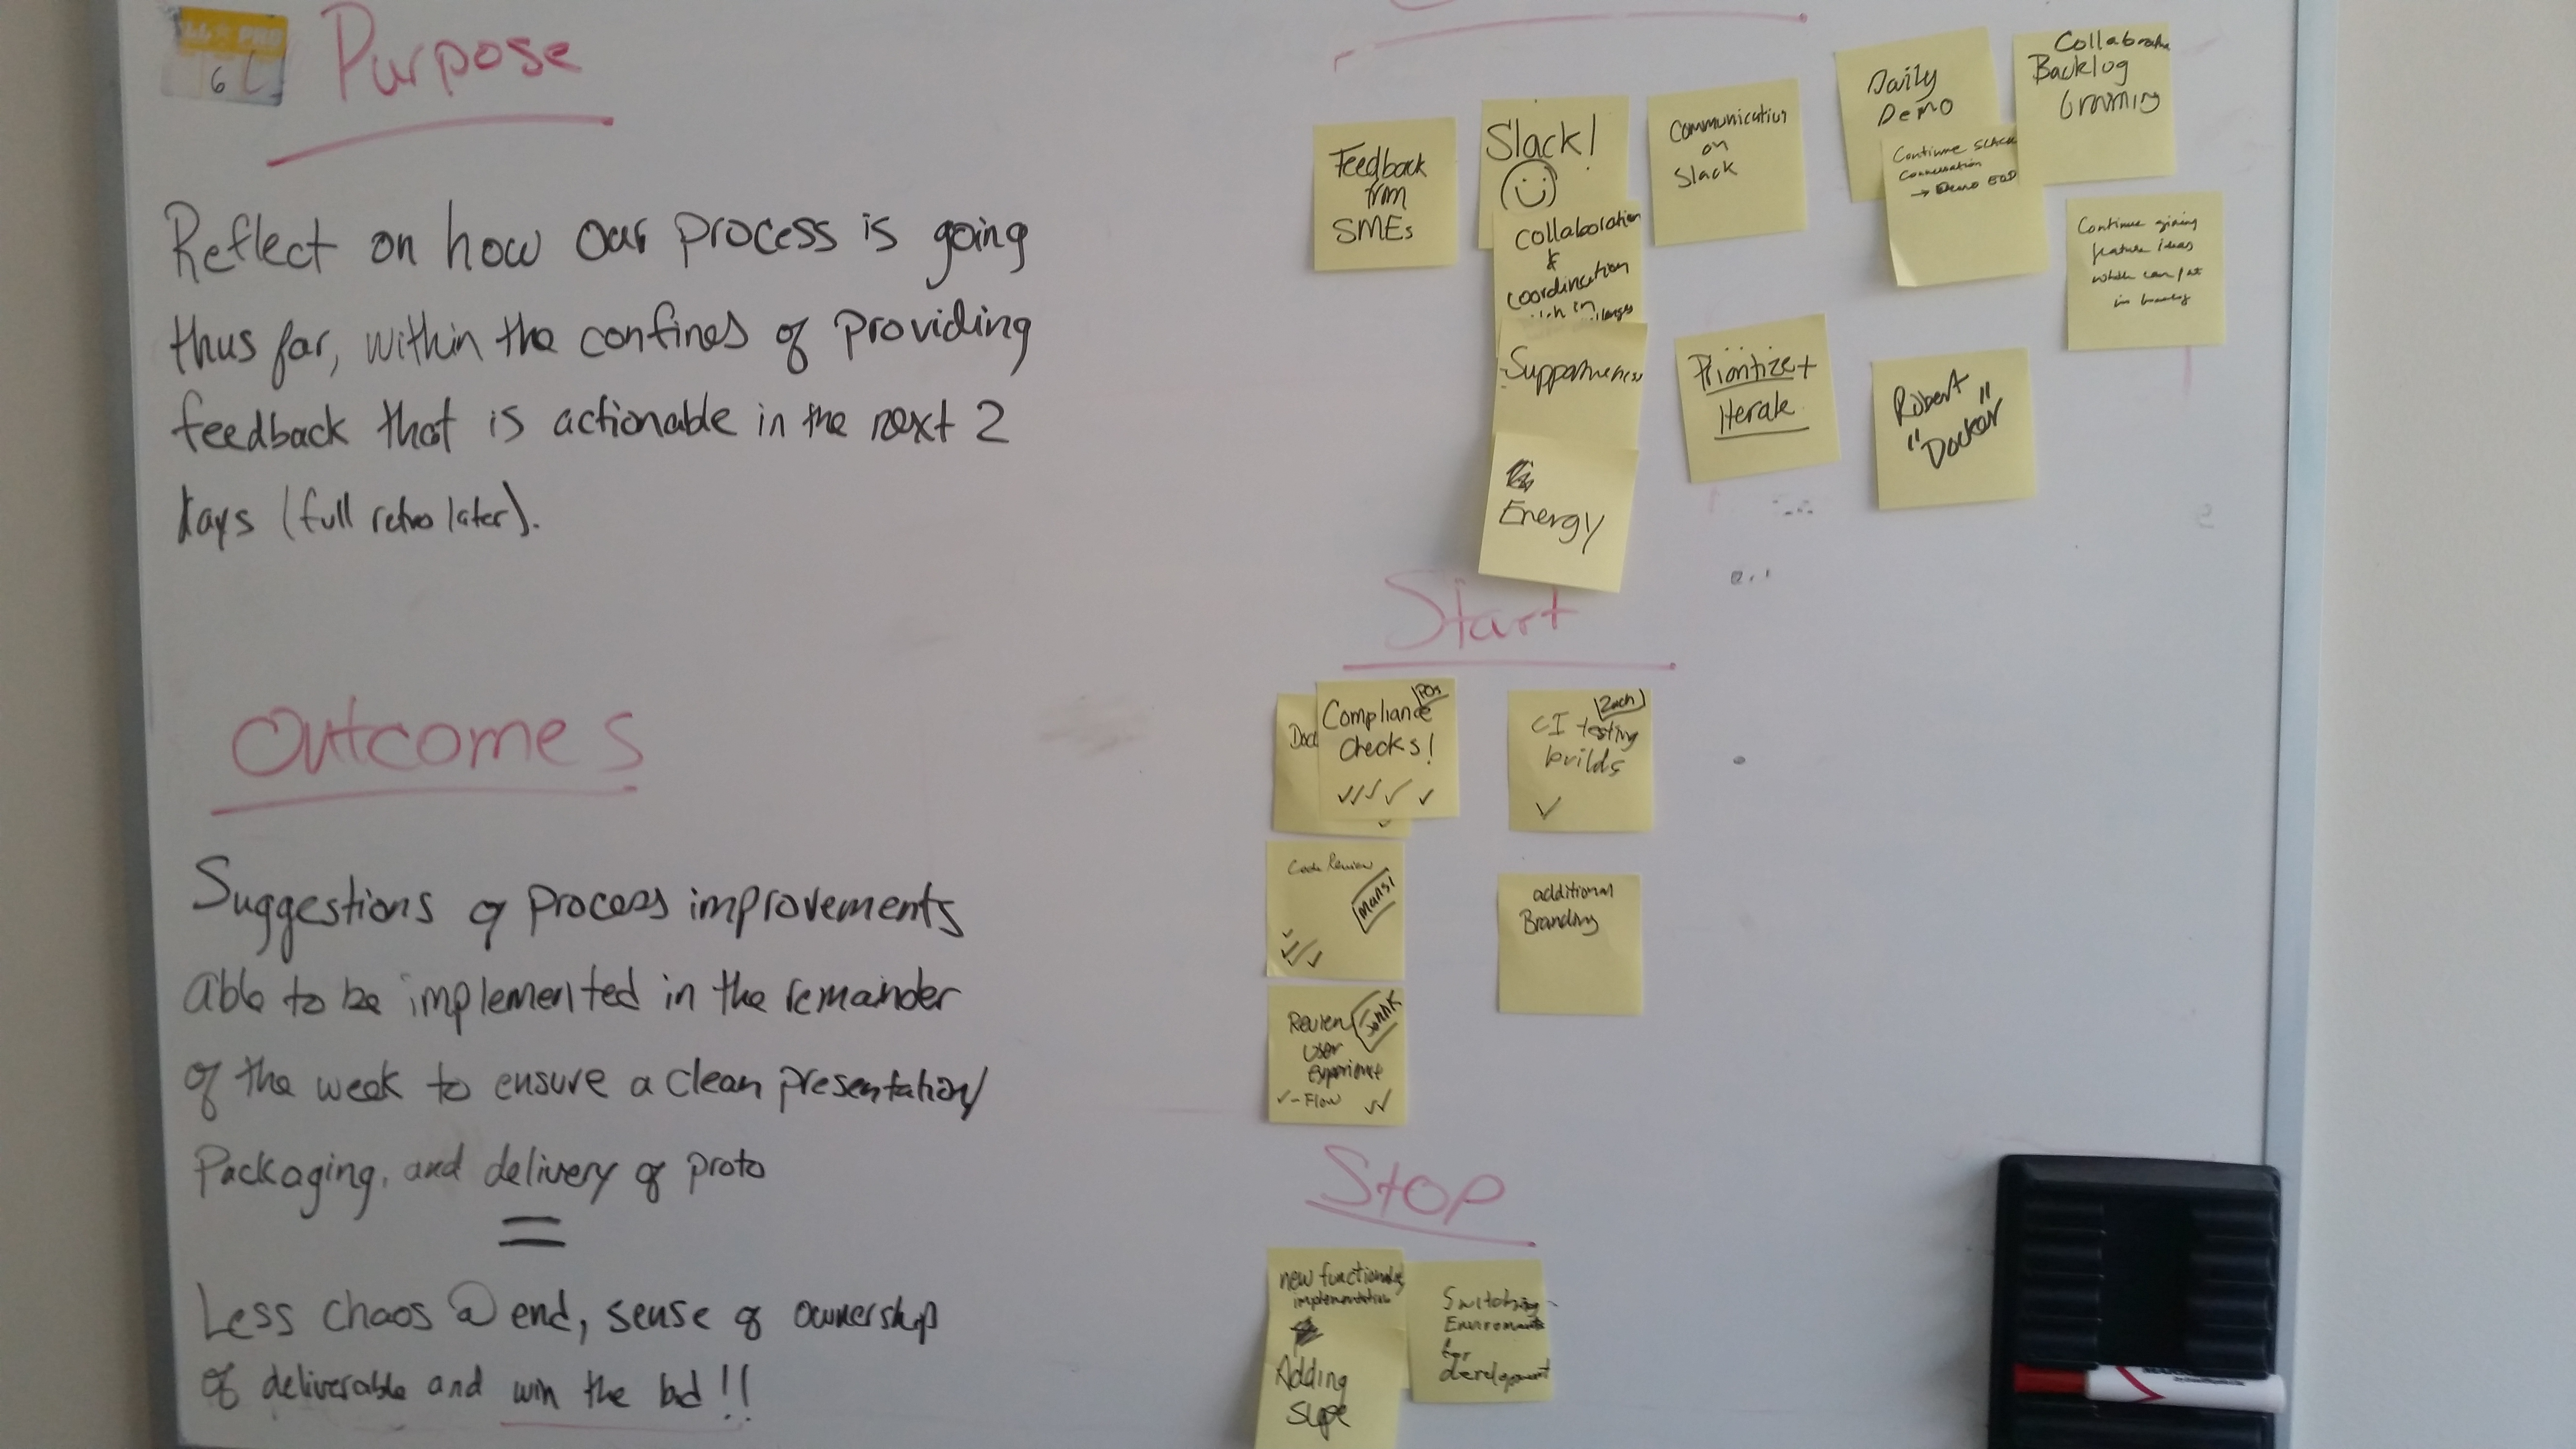 Purpose
Reflect on how our process is going
thus far, within the confines of providing
feedback that is actionable in the next 2
days (full retro later).
Outcomes
Suggestions of process improvements
able to be implemented in the remainder
of the week to ensure a clean presentation/
Packaging, and delivery of proto
=
Less chaos @ end, sense of ownership
of deliverable and win the bid!!
Feedback
from
SMEs
Slack!
Collaboration
&
coordination
Supportiveness
Energy
Communication
on
Slack
Daily
Demo
Continue SLACK
Conversation
→ Demo EOD
Collaborative
Backlog
Grooming
Continue giving
feature ideas
which can put
in
Prioritize +
Iterate
Robert
"Docker"
Start
Compliance
Checks!
POs
✓✓✓✓ ✓
CI testing
builds
Zach
✓
Code Review
Mansi
Review
User
Experience
✓- Flow ✓✓
additional
Branding
Stop
new functionality
implementation
Adding
Switching
Environments
for
development